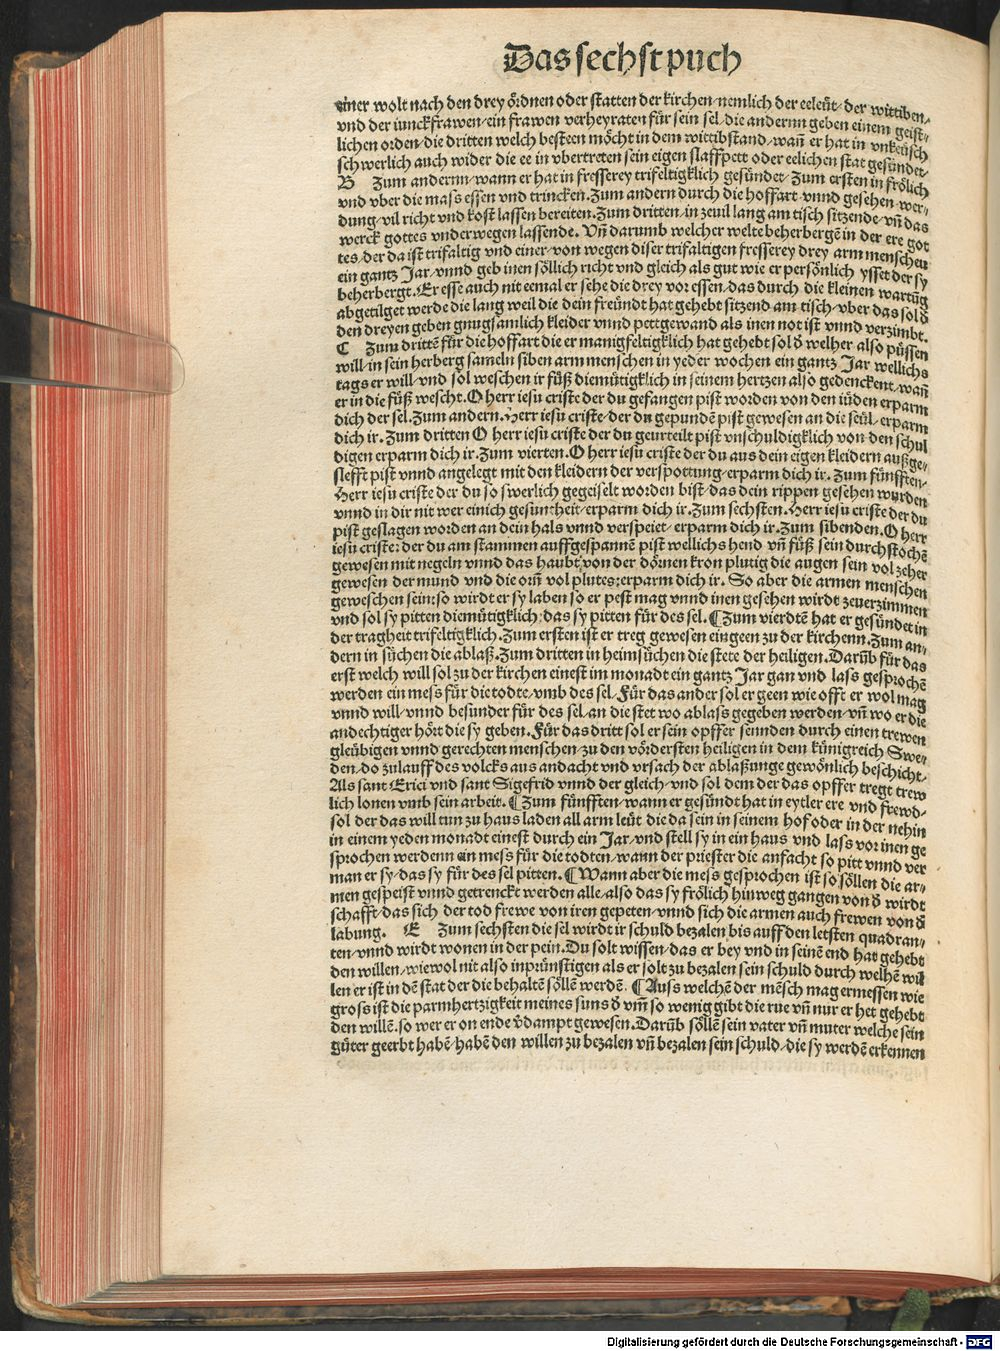 Das sechst puch
einer wolt nach den drey ördnen oder statten der kirchen/nemlich der eeleüt/der wittiben/
vnd der iunckfrawen/ein frawen verheyraten für sein sel/die andernn geben einem geist/
lichen orden/die dritten welch besteen möcht in dem wittibstand/wañ er hat in vnkeüsch
schwerlich auch wider die ee in vbertreten sein eigen slaffpett oder eelichen stat gesündet/
B Zum andernn/wann er hat in fresserey trifeltigklich gesündet/Zum ersten in frölich
vnd vber die mass essen vnd trincken.Zum andern durch die hoffart/vnnd gesehen wer/
dung/vil richt vnd kost lassen bereiten.Zum dritten/in zeuil lang am tisch sitzende/vñ das
werck gottes vnderwegen lassende. Vñ darumb welcher welte beherbergē in der ere got
tes/der da ist trifaltig vnd einer/von wegen diser trifaltigen fresserey drey arm menschen
ein gantz Jar/vnnd geb inen söllich richt vnd gleich als gut wie er persönlich ysset der sy
beherbergt.Er esse auch nit eemal er sehe die drey vor essen/das durch die kleinen wartũg
abgetilget werde die lang weil die dein freündt hat gehebt sitzend am tisch/vber das sol ð
den dreyen geben gnugsamlich kleider vnnd pettgewand als inen not ist vnnd verzimbt.
C Zum drittē für die hoffart die er manigfeltigklich hat gehebt sol ð welher also püssen
will/in sein herberg sameln siben arm menschen in yeder wochen ein gantz Jar wellichs
tags er will/vnd sol weschen ir füß diemütigklich in seinem hertzen also gedenckent/wañ
er in die füß wescht.O herr iesu criste der du gefangen pist worden von den iüden erparm
dich der sel.Zum andern.Herr iesu criste/der du gepundē pist gewesen an die seül/erparm
dich ir.Zum dritten O herr iesu criste der du geurteilt pist vnschuldigklich von den schul
digen erparm dich ir.Zum vierten.O herr iesu criste der du aus dein eigen kleidern außge/
slefft pist vnnd angelegt mit den kleidern der verspottung/erparm dich ir.Zum fünfften/
Herr iesu criste der du so swerlich gegeiselt worden bist/das dein rippen gesehen wurden
vnnd in dir nit wer einich gesuntheit/erparm dich ir.Zum sechsten.Herr iesu criste der du
pist geslagen worden an dein hals vnnd verspeiet/erparm dich ir.Zum sibenden.O herr
iesu criste:der du am stammen auffgespannē pist wellichs hend vñ füß sein durchstochē
gewesen mit negeln vnnd das haubt von der dörnen kron plutig die augen sein vol zeher
gewesen der mund vnd die orñ vol plutes:erparm dich ir. So aber die armen menschen
geweschen sein:so wirdt er sy laben so er pest mag vnnd inen gesehen wirdt zeuerzimmen
vnd sol sy pitten diemütigklich:das sy pitten für des sel.¶Zum vierdtē hat er gesündet in
der tragheit trifeltigklich.Zum ersten ist er treg gewesen eingeen zu der kirchenn.Zum an/
dern in süchen die ablaß.Zum dritten in heimsüchen die stete der heiligen.Darũb für das
erst welch will sol zu der kirchen einest im monadt ein gantz Jar gan vnd lass gesprochē
werden ein mess für die todte/vmb des sel/Für das ander sol er geen wie offt er wol mag
vnnd will/vnnd besunder für des sel/an die stet wo ablass gegeben werden/vñ wo er die
andechtiger hört die sy geben.Für das dritt sol er sein opffer sennden durch einen trewen
gleübigen vnnd gerechten menschen/zu den vördersten heiligen in dem künigreich Swe/
den/do zulauff des volcks aus andacht vnd vrsach der ablaßunge gewönlich beschicht/
Als sant Erici vnd sant Sigefrid vnnd der gleich/vnd sol dem der das opffer tregt trew
lich lonen vmb sein arbeit.¶Zum fünfften/wann er gesündt hat in eytler ere vnd frewd/
sol der das will tun zu haus laden all arm leüt die da sein in seinem hof oder in der nehin
in einem yeden monadt einest durch ein Jar/vnd stell sy in ein haus vnd lass vor inen ge
sprochen werdenn ein mess für die todten/wann der priester die anfacht so pitt vnnd ver
man er sy/das sy für des sel pitten.¶Wann aber die mess gesprochen ist so söllen die ar/
men gespeist vnnd getrenckt werden alle/also das sy frölich hinweg gangen von ð wirdt
schafft/das sich der tod frewe von iren gepeten/vnnd sich die armen auch frewen von ð
labung. E Zum sechsten die sel wirdt ir schuld bezalen bis auff den letsten quadran/
ten/vnnd wirdt wonen in der pein.Du solt wissen/das er bey vnd in seinē end hat gehebt
den willen/wiewol nit also inprünstigen als er solt zu bezalen sein schuld durch welhē wil
len er ist in dē stat der die behaltē söllē werdē. ¶Auss welchē der mēsch mag ermessen wie
gross ist die parmhertzigkeit meines suns ð vm̃ so wenig gibt die rue vñ nur er het gehebt
den willē.so wer er on ende v̄dampt gewesen.Darũb söllē sein vater vñ muter welche sein
güter geerbt habē/habē den willen zu bezalen vñ bezalen sein schuld/die sy werdē erkennen
Digitalisierung gefördert durch die Deutsche Forschungsgemeinschaft - DFG